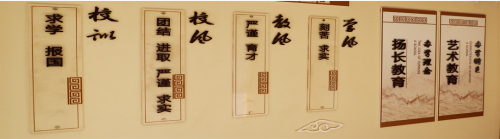 校训
求学 报国
校风
团结 进取 严谨 求实
教风
严谨 育才
学风
刻苦 求实
办学理念
扬长教育
办学特色
艺术教育